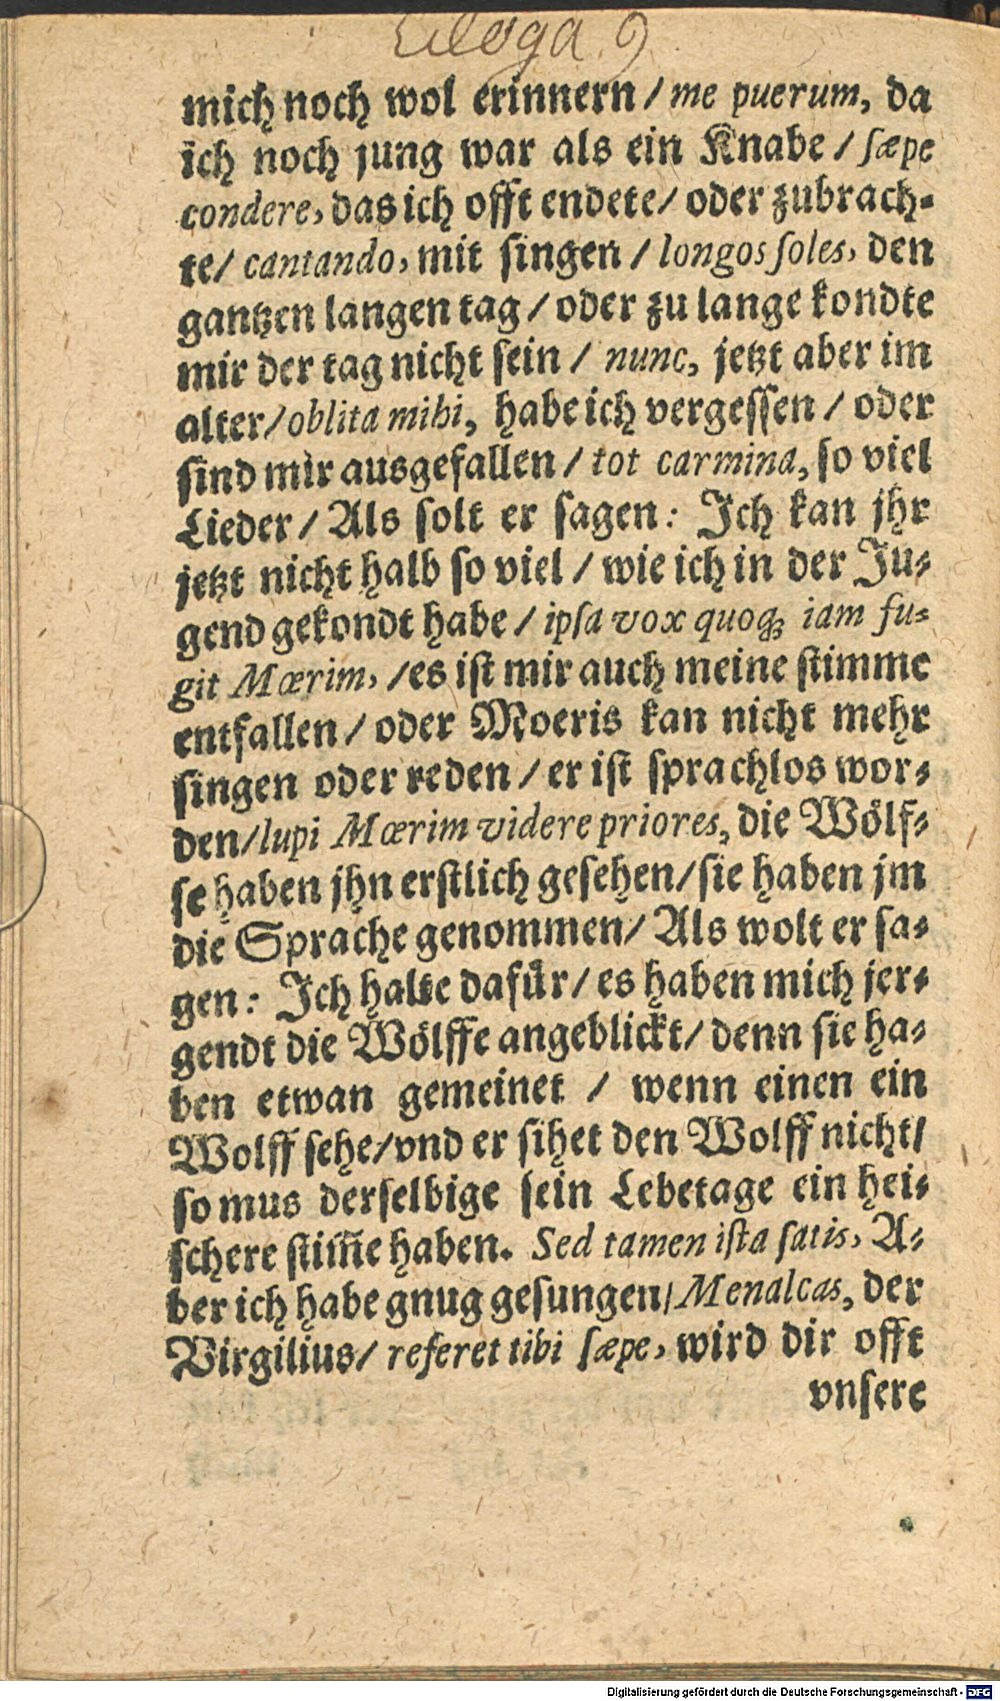 Ecloga 9
mich noch wol erinnern / me puerum, da
ich noch jung war als ein Knabe / sæpe
condere, das ich offt endete / oder zubrach-
te / cantando, mit singen / longos soles, den
gantzen langen tag / oder zu lange kondte
mir der tag nicht sein / nunc, jetzt aber im
alter / oblita mihi, habe ich vergessen / oder
sind mir ausgefallen / tot carmina, so viel
Lieder / Als solt er sagen: Ich kan jhr
jetzt nicht halb so viel / wie ich in der Ju-
gend gekondt habe / ipsa vox quoq; iam fu-
git Mœrim, / es ist mir auch meine stimme
entfallen / oder Moeris kan nicht mehr
singen oder reden / er ist sprachlos wor-
den / lupi Mœrim videre priores, die Wölf-
fe haben jhn erstlich gesehen / sie haben jm
die Sprache genommen / Als wolt er sa-
gen: Ich halte dafür / es haben mich jer-
gendt die Wölffe angeblickt / denn sie ha-
ben etwan gemeinet / wenn einen ein
Wolff sehe / vnd er sihet den Wolff nicht /
so mus derselbige sein Lebetage ein hei-
schere stim̃e haben. Sed tamen ista satis, A-
ber ich habe gnug gesungen / Menalcas, der
Virgilius / referet tibi sæpe, wird dir offt
vnsere
Digitalisierung gefördert durch die Deutsche Forschungsgemeinschaft - DFG